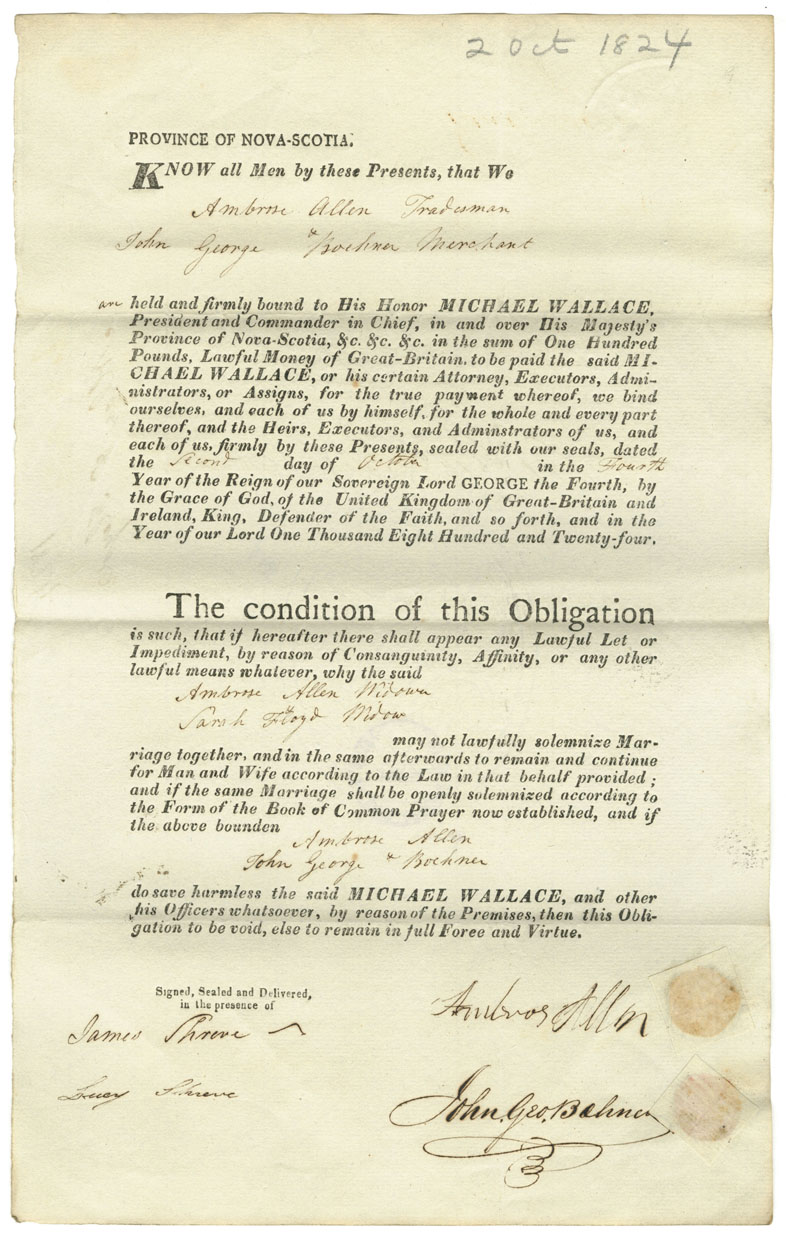 2 Oct 1824
PROVINCE OF NOVA-SCOTIA.
KNOW all Men by these Presents, that We
Ambrose Allen Tradesman
&
John George Boehner Merchant
are held and firmly bound to His Honor MICHAEL WALLACE,
President and Commander in Chief, in and over His Majesty's
Province of Nova-Scotia, &c. &c. &c. in the sum of One Hundred
Pounds, Lawful Money of Great-Britain. to be paid the said MI-
CHAEL WALLACE, or his certain Attorney, Executors, Admi-
nistrators, or Assigns, for the true payment whereof, we bind
ourselves, and each of us by himself, for the whole and every part
thereof, and the Heirs, Executors, and Adminstrators of us, and
each of us, firmly by these Presents, sealed with our seals, dated
the Second day of October in the Fourth
Year of the Reign of our Sovereign Lord GEORGE the Fourth, by
the Grace of God, of the United Kingdom of Great-Britain and
Ireland, King, Defender of the Faith, and so forth, and in the
Year of our Lord One Thousand Eight Hundred and Twenty-four.
The condition of this Obligation
is such, that if hereafter there shall appear any Lawful Let or
Impediment, by reason of Consanguinity, Affinity, or any other
lawful means whatever, why the said
Ambrose Allen Widower
&
Sarah Floyd Widow
may not lawfully solemnize Mar-
riage together, and in the same afterwards to remain and continue
for Man and Wife according to the Law in that behalf provided;
and if the same Marriage shall be openly solemnized according to
the Form of the Book of Common Prayer now established, and if
the above bounden
Ambrose Allen
&
John George Boehner
do save harmless the said MICHAEL WALLACE, and other
his Officers whatsoever, by reason of the Premises, then this Obli-
gation to be void, else to remain in full Force and Virtue.
Signed, Sealed and Delivered,
in the presence of
James Shreve
Lucy Shreve
Ambros Allen
John. Geo. Boehner